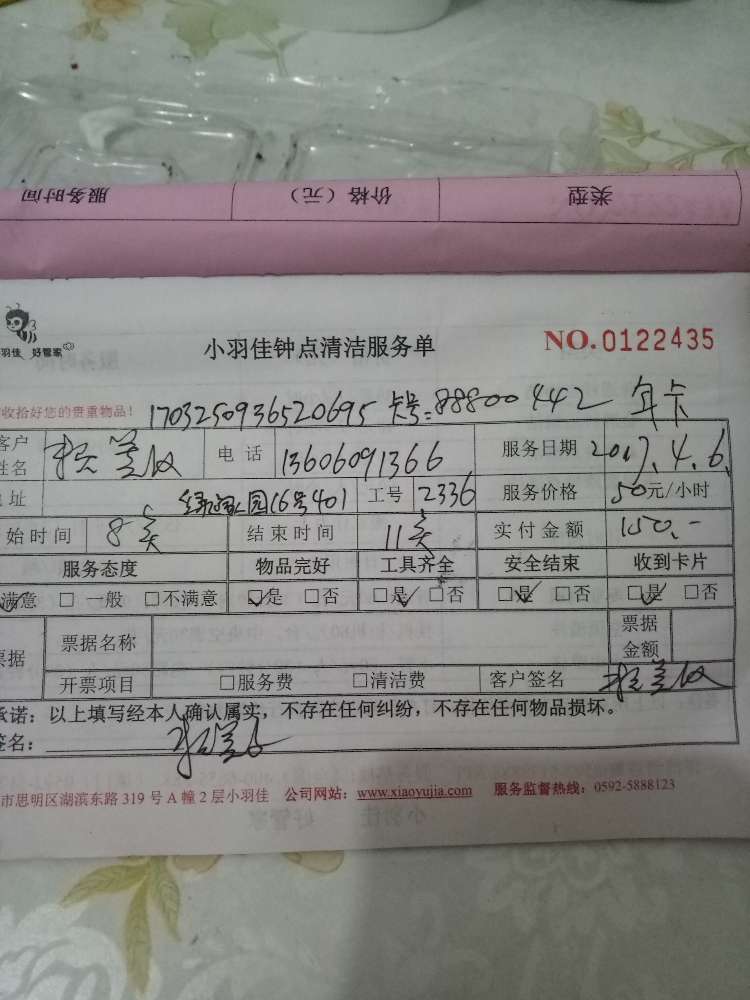 服务时间 价格（元） 类型
羽佳 好管家
小羽佳钟点清洁服务单 NO.0122435
收拾好您的贵重物品! 1703250936520695 卡号:88800442 年卡
客户姓名 电话 13606091366 服务日期 2017.4.6.
址 公园16号401 工号 2336 服务价格 50元/小时
始时间 8点 结束时间 11点 实付金额 150.-
服务态度 物品完好 工具齐全 安全结束 收到卡片
满意 □ 一般 □不满意 □是 □否 □是 □否 □是 □否 □是 □否
票据 票据名称 票据金额
开票项目 □服务费 □清洁费 客户签名
承诺：以上填写经本人确认属实，不存在任何纠纷，不存在任何物品损坏。
签名：
市思明区湖滨东路 319 号 A 幢 2 层小羽佳 公司网站：www.xiaoyujia.com 服务监督热线：0592-5888123